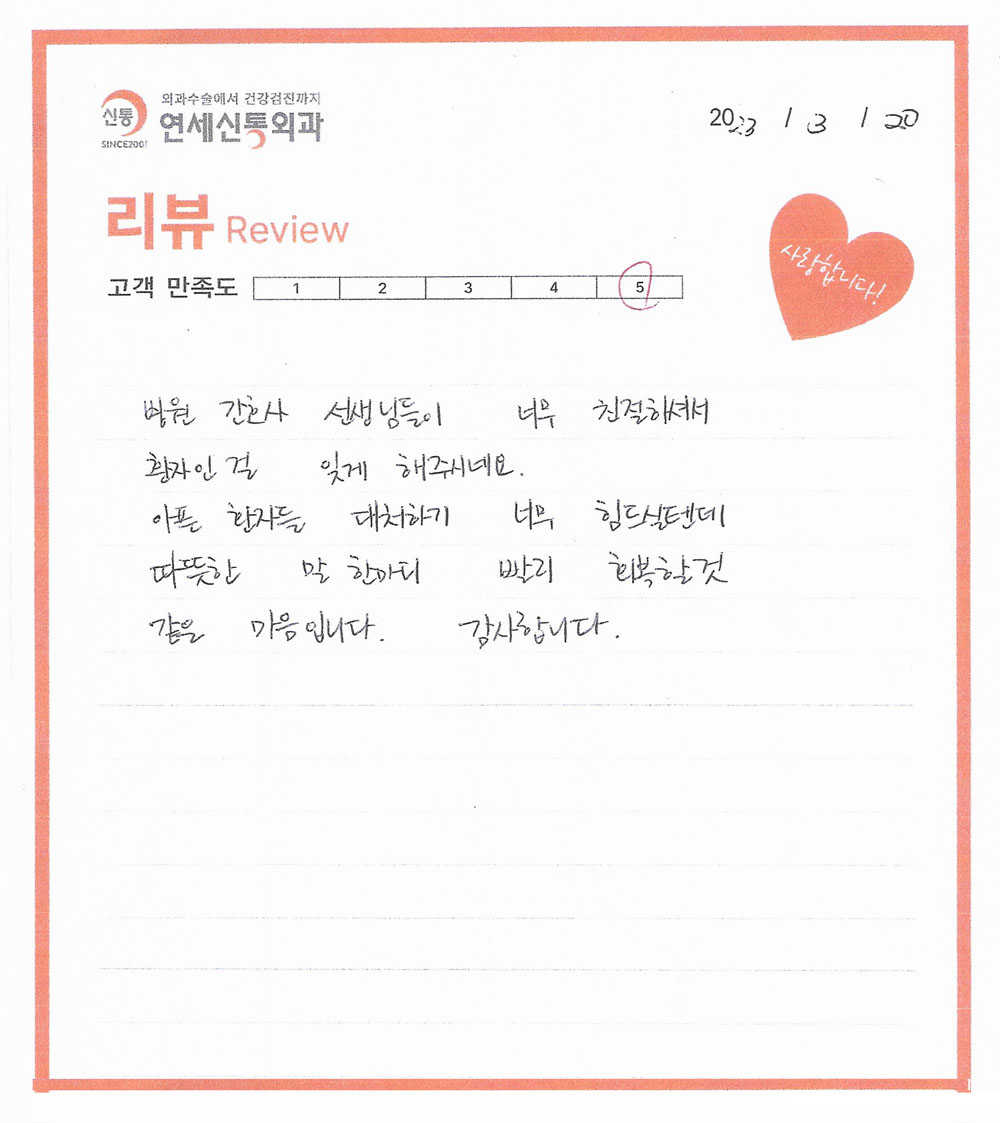 신통
SINCE2001
외과수술에서 건강검진까지
연세신통외과
2023 / 3 / 20
리뷰 Review
사랑합니다!
고객 만족도 1 2 3 4 5
병원 간호사 선생님들이 너무 친절하셔서
환자인 걸 잊게 해주시네요.
아픈 환자들 대처하기 너무 힘드실텐데
따뜻한 말 한마디 빨리 회복할것
같은 마음입니다. 감사합니다.